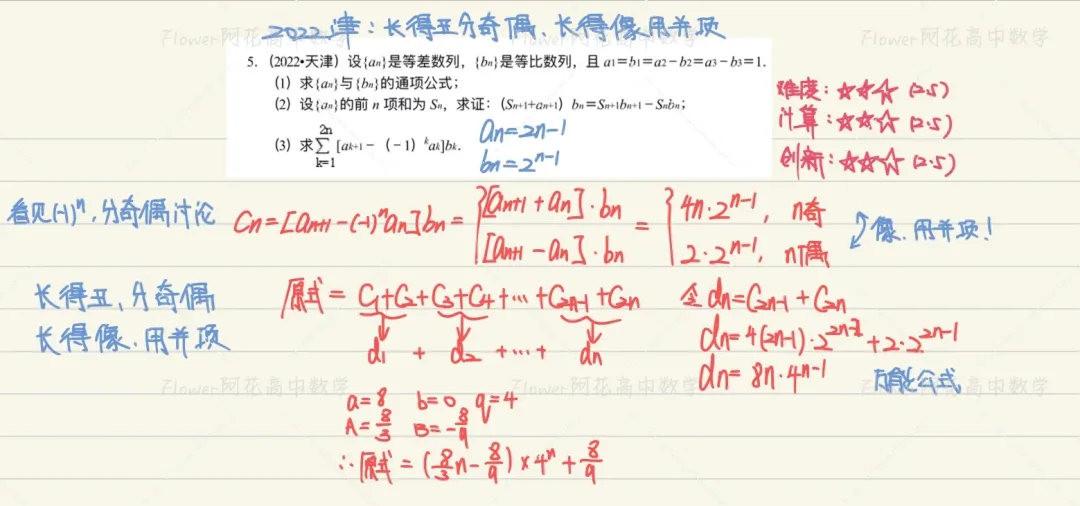 2022津：长得丑分奇偶、长得像用并项
5.（2022•天津）设{an}是等差数列，{bn}是等比数列，且 a1=b1=a2－b2=a3－b3=1.
（1）求{an}与{bn}的通项公式；
（2）设{an}的前 n 项和为 Sn，求证：（Sn+1+an+1）bn=Sn+1bn+1－Snbn；
（3）求∑_{k=1}^{2n}[ak+1－（-1）^k ak]bk.
an=2n-1
bn=2^{n-1}
难度：☆☆☆(2.5)
计算：☆☆☆(2.5)
创新：☆☆☆(2.5)
看见(-1)^n，分奇偶讨论
Cn=[an+1-(-1)^n an]bn={[an+1+an]·bn  [an+1-an]·bn={4n·2^{n-1}, n奇  2·2^{n-1}, n偶
像、用并项！
长得丑，分奇偶
长得像、用并项
原式=C1+C2+C3+C4+…+C2n-1+C2n
d1 + d2 +…+ dn
令dn=C2n-1+C2n
dn=4(2n-1)·2^{2n-2}+2·2^{2n-1}
dn=8n·4^{n-1}
万能公式
a=8 b=0 q=4
A=8/3 B=-8/9
∴原式=(8/3n-8/9)×4^n+8/9
Flower阿花高中数学
Flower阿花高中数学
Flower阿花高中数学
Flower阿花高中数学